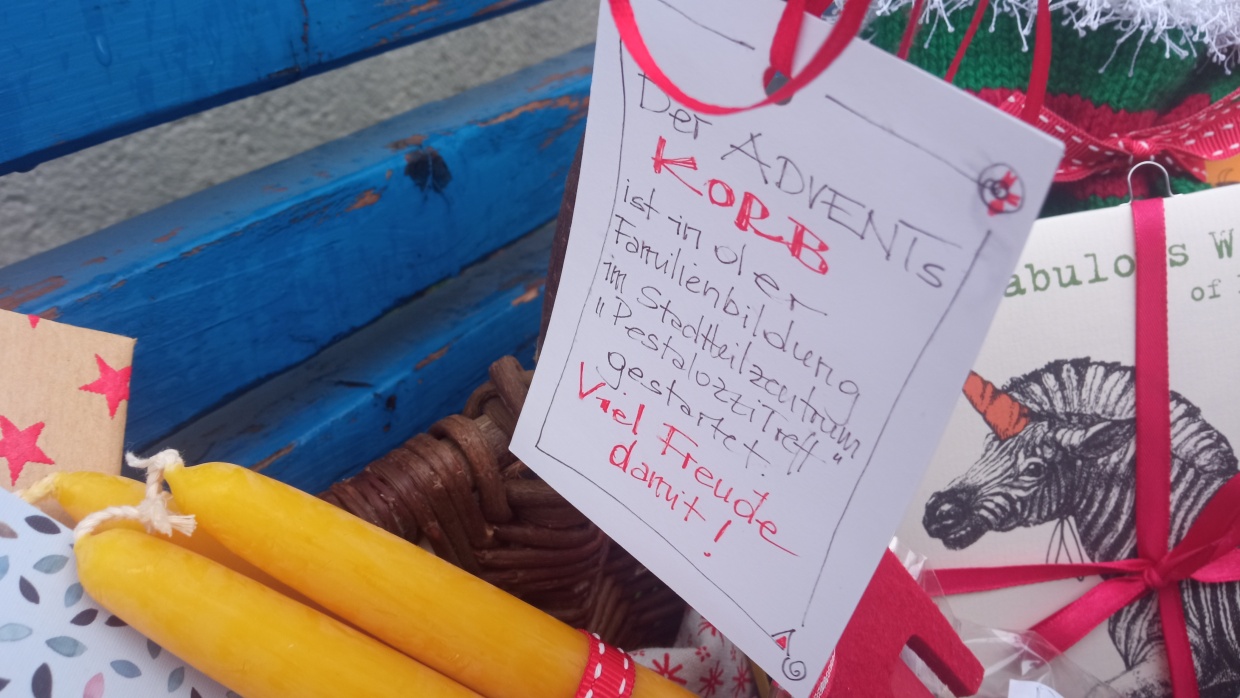 Der ADVENTs
KORB
ist in der
Familienbildung
im Stadtteilzentrum
"PestalozziTreff"
gestartet.
Viel Freude
damit!
abulous W
of